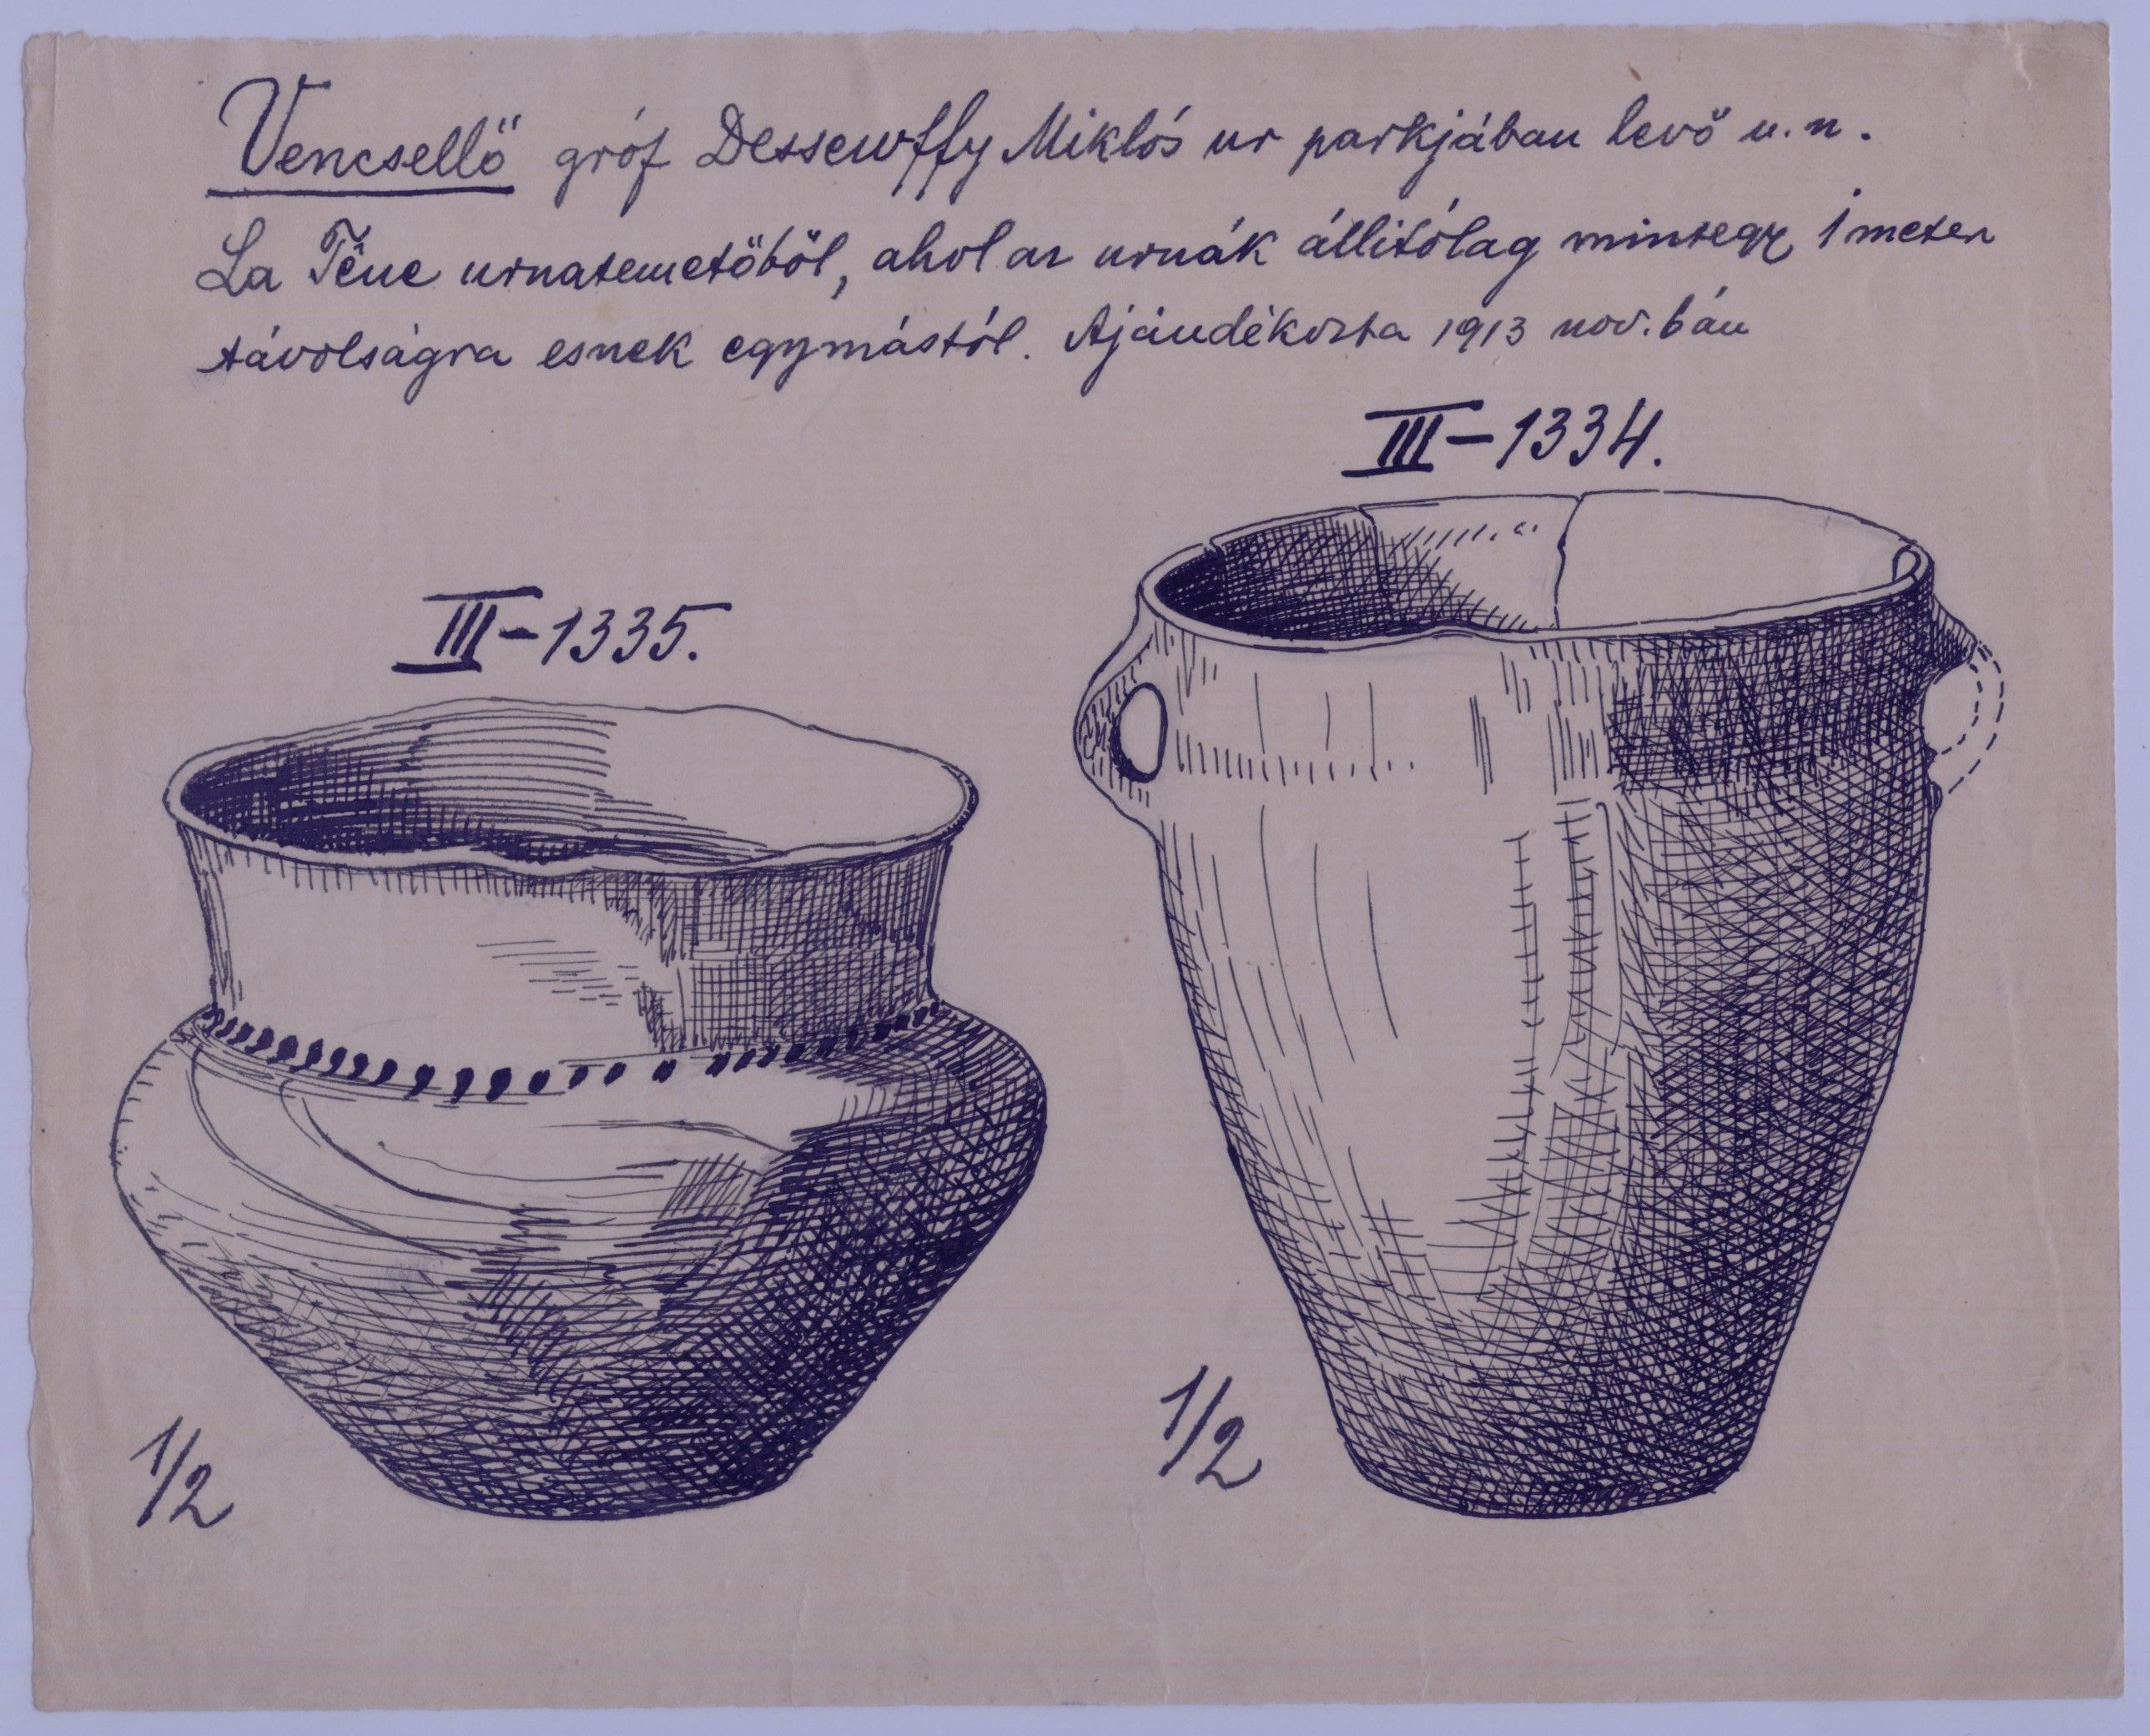 Vencsellő gróf Dessewffy Miklós ur parkjában levő u.n.
La Tène urnatemetőből, ahol az urnák állitólag mintegy 1 meter
távolságra esnek egymástól. Ajándékozta 1913 nov. bán
III–1334.
III–1335.
1/2
1/2